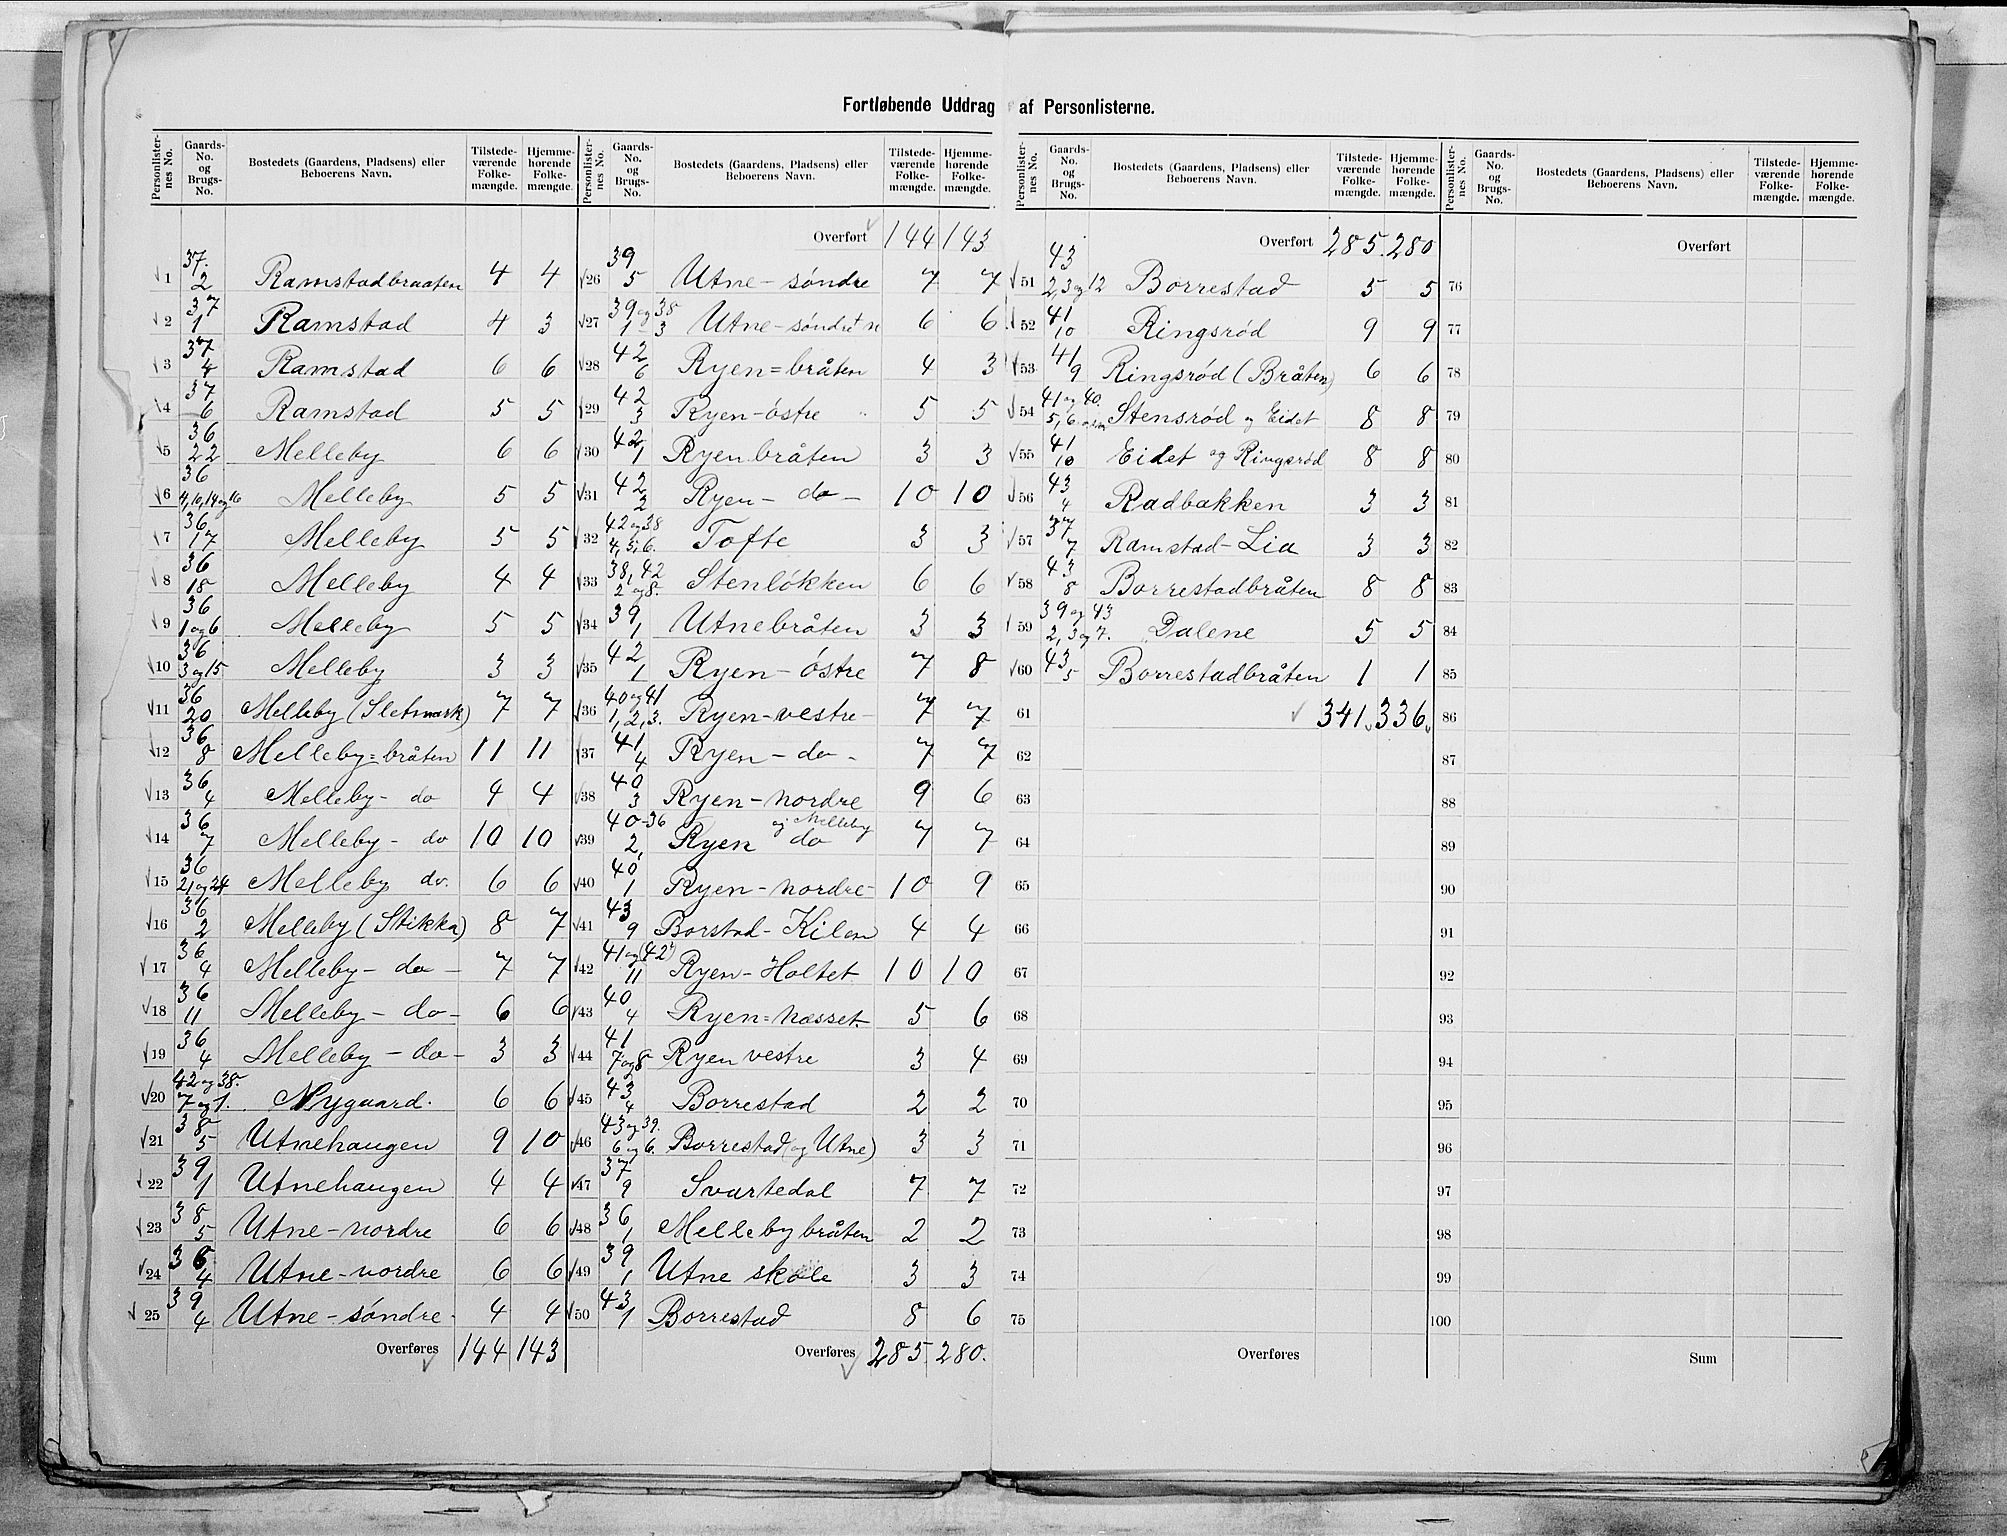 Fortløbende Uddrag af Personlisterne.
Personlister-nes No. | Gaards-No. og Brugs-No. | Bostedets (Gaardens, Pladsens) eller Beboerens Navn. | Tilstede-værende Folke-mængde. | Hjemme-hørende Folke-mængde.
1 | 37. 2 | Ramstadbraaten | 4 | 4
2 | 37 1 | Ramstad | 4 | 3
3 | 37 4 | Ramstad | 6 | 6
4 | 37 6 | Ramstad | 5 | 5
5 | 36 22 | Melleby | 6 | 6
6 | 36 4, 10, 14 og 16 | Melleby | 5 | 5
7 | 36 17 | Melleby | 5 | 5
8 | 36 18 | Melleby | 4 | 4
9 | 36 1 og 6 | Melleby | 5 | 5
10 | 36 3 og 15 | Melleby | 3 | 3
11 | 36 20 | Melleby (Sletmark) | 7 | 7
12 | 36 8 | Melleby=bråten | 11 | 11
13 | 36 4 | Melleby - do | 4 | 4
14 | 36 7 | Melleby - do | 10 | 10
15 | 36 21 og 24 | Melleby do. | 6 | 6
16 | 36 2 | Melleby (Stikka) | 8 | 7
17 | 36 4 | Melleby - do - | 7 | 7
18 | 36 11 | Melleby - do - | 6 | 6
19 | 36 4 | Melleby - do - | 3 | 3
20 | 42 og 38. 7 og 1. | Nygaard. | 6 | 6
21 | 38 5 | Utnehaugen | 9 | 10
22 | 39 1 | Utnehaugen | 4 | 4
23 | 38 5 | Utne - nordre | 6 | 6
24 | 38 4 | Utne - nordre | 6 | 6
25 | 39 4 | Utne - søndre | 4 | 4
Overføres 144 143
Personlister-nes No. | Gaards-No. og Brugs-No. | Bostedets (Gaardens, Pladsens) eller Beboerens Navn. | Tilstede-værende Folke-mængde. | Hjemme-hørende Folke-mængde.
Overført 144 143
26 | 39 5 | Utne - søndre | 7 | 7
27 | 39 og 38 1 - 3 | Utne - søndre | 6 | 6
28 | 42 6 | Ryen=bråten | 4 | 3
29 | 42 3 | Ryen - östre | 5 | 5
30 | 42 1 | Ryenbråten | 3 | 3
31 | 42 2 | Ryen - do - | 10 | 10
32 | 42 og 38 4, 5, 6. | Tofte | 3 | 3
33 | 38, 42 2 og 8. | Stenlökken | 6 | 6
34 | 39 1 | Utnebråten | 3 | 3
35 | 42 1 | Ryen - östre | 7 | 8
36 | 40 og 41 1, 2, 3. | Ryen - vestre - | 7 | 7
37 | 41 4 | Ryen - do - | 7 | 7
38 | 40 3 | Ryen - nordre | 9 | 6
39 | 40 - 36 2, | Ryen do og Melleby | 7 | 7
40 | 40, 1 | Ryen - nordre - | 10 | 9
41 | 43 9 | Borstad - Kilen | 4 | 4
42 | 41 og (42) 11 | Ryen - Holtet | 10 | 10
43 | 40 4 | Ryen = næsset. | 5 | 6
44 | 41 7 og 8 | Ryen vestre | 3 | 4
45 | 43 4 | Borrestad | 2 | 2
46 | 43 og 39. 6 og 6. | Borrestad (og Utne) | 3 | 3
47 | 37 9 | Svartedal | 7 | 7
48 | 36 1 | Melleby bråten | 2 | 2
49 | 39 1 | Utne skole | 3 | 3
50 | 43 1 | Borrestad | 8 | 6
Overføres 285 280.
Personlister-nes No. | Gaards-No. og Brugs-No. | Bostedets (Gaardens, Pladsens) eller Beboerens Navn. | Tilstede-værende Folke-mængde. | Hjemme-hørende Folke-mængde.
Overført 285. 280
51 | 43 2, 3 og 12 | Borrestad | 5 | 5
52 | 41 10 | Ringsrød | 9 | 9
53 | 41 9 | Ringsrød (Bråten) | 6 | 6
54 | 41 og 40. 5, 6 | Stensrød og Eidet | 8 | 8
55 | 41 10 | Eidet og Ringsrød | 8 | 8
56 | 43 4 | Radbakken | 3 | 3
57 | 37 7 | Ramstad - Lia | 3 | 3
58 | 43 8 | Borrestadbråten | 8 | 8
59 | 39 og 43 2, 3 og 7. | Dalene | 5 | 5
60 | 43 5 | Borrestadbråten | 1 | 1
61 341 336
62
63
64
65
66
67
68
69
70
71
72
73
74
75
Overføres
Personlister-nes No. | Gaards-No. og Brugs-No. | Bostedets (Gaardens, Pladsens) eller Beboerens Navn. | Tilstede-værende Folke-mængde. | Hjemme-hørende Folke-mængde.
Overført
76
77
78
79
80
81
82
83
84
85
86
87
88
89
90
91
92
93
94
95
96
97
98
99
100
Sum